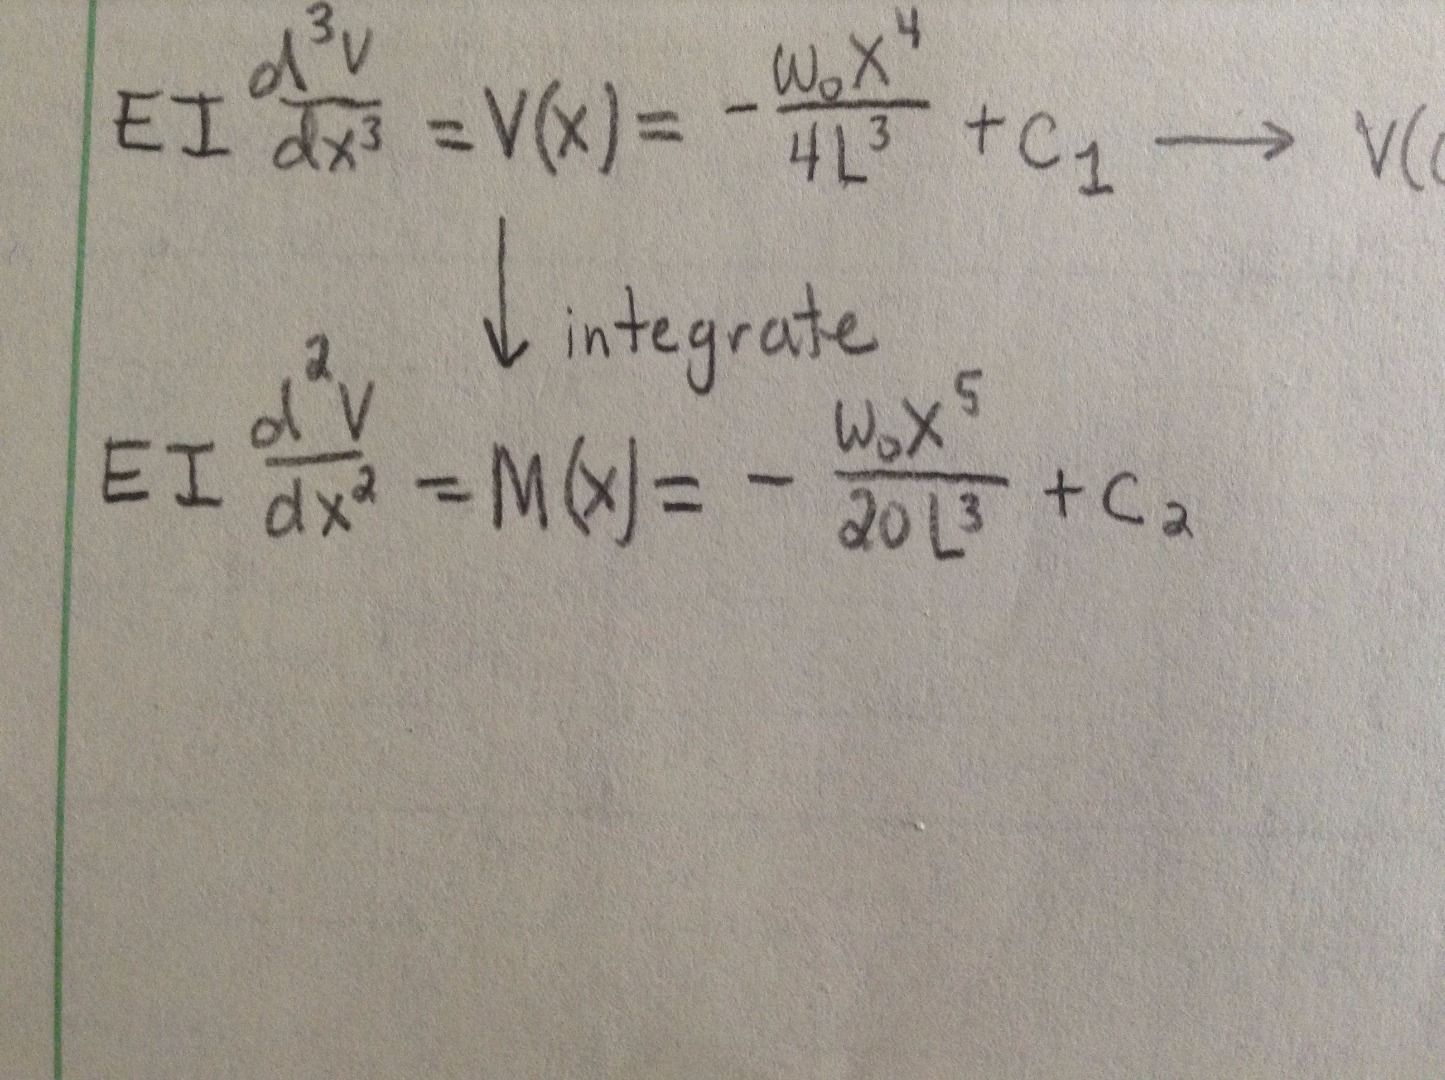 EI d³v/dx³ = V(x) = - w₀x⁴/4L³ + C₁ → V(
↓ integrate
EI d²v/dx² = M(x) = - w₀x⁵/20L³ + C₂